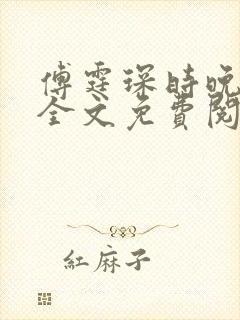 傅霆琛時晚
全文免費閱
紅麻子